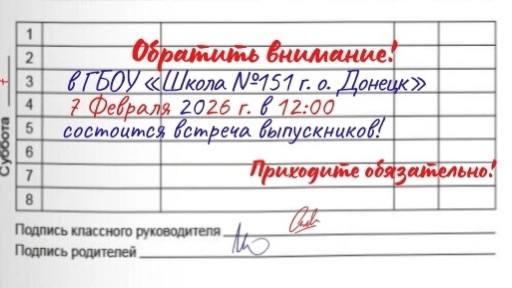 1
2
Обратить внимание!
3
в ГБОУ «Школа №151 г. о. Донецк»
4
7 Февраля 2026 г. в 12:00
5
состоится встреча выпускников!
6
7
Приходите обязательно!
8
Суббота 7
Подпись классного руководителя
Подпись родителей